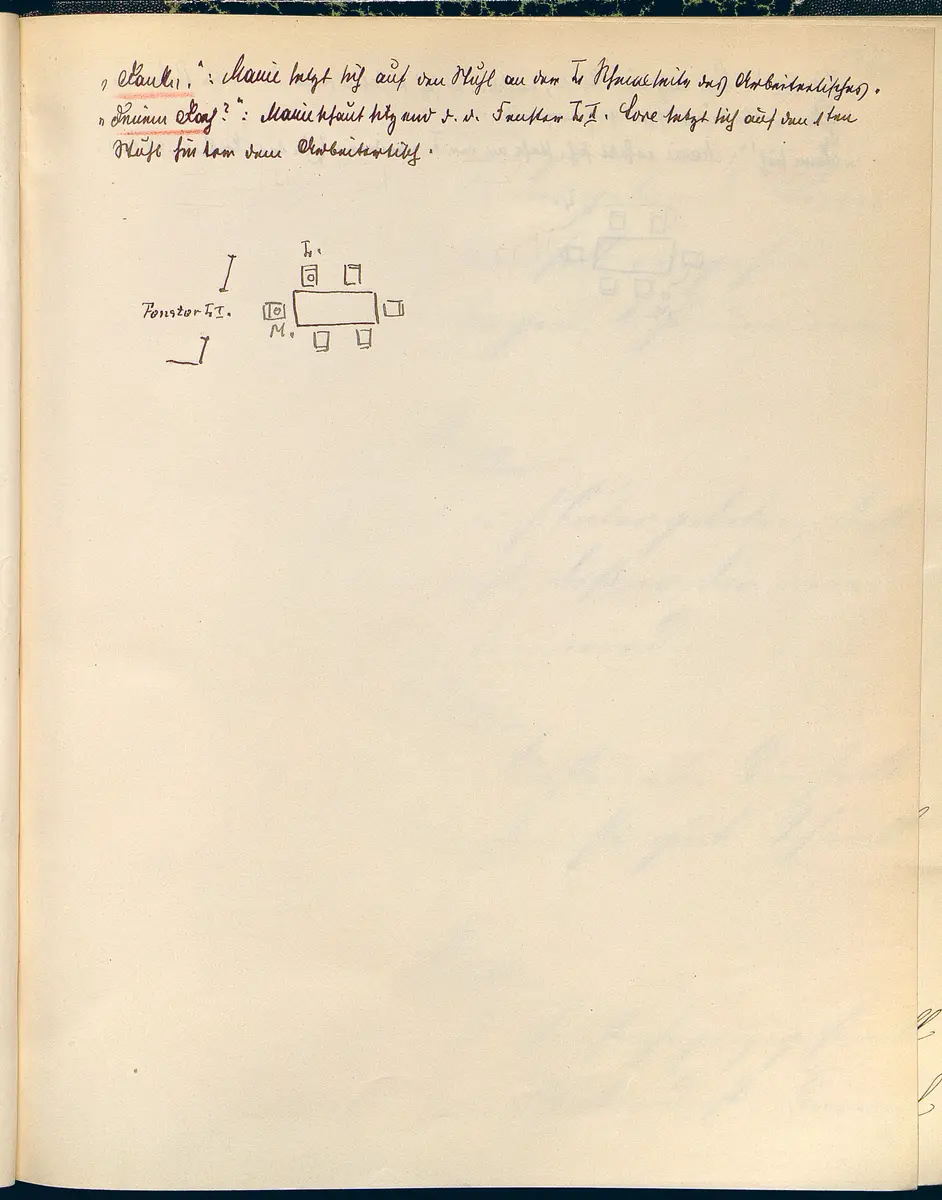 „Danke.“: Marie setzt sich auf den Stuhl an der L Schmalseite des Arbeitertisches.
Marie schaut sitzend d. d. Fenster L I. Lore setzt sich auf den 1ten
Stuhl hinter dem Arbeitertisch.
L.
Fenster L I.
M.